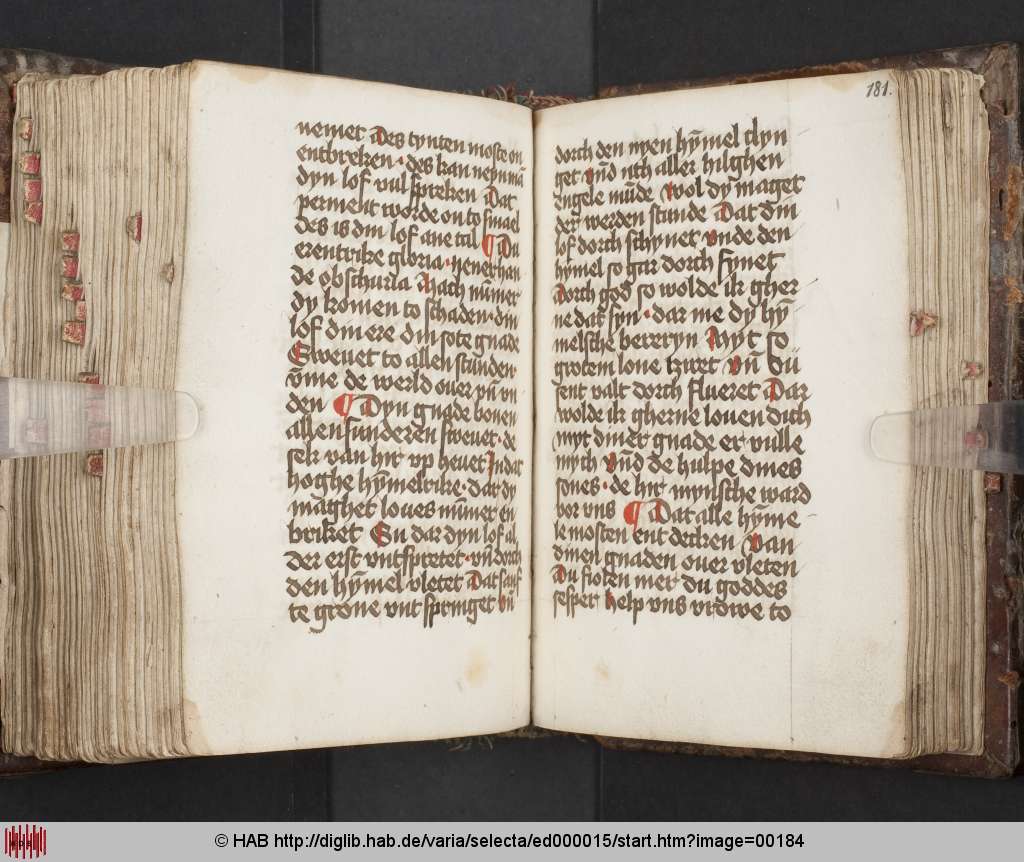 nemet Des tynten moste on
entbreken · des kan neyn mā
dyn lof vulspreken Dat
perment worde on to smael
des is din lof ane tal ¶ Du
erentrike gloria · yener han
de obschuria Mach nūmer
dy komen to schaden · din
lof din ere din sote gnade
Sweuet to allen stunden
vm̄e de werld ouer vn̄ vn
den ¶ Dyn gnade bouen
allen sunderen sweuet · de
sek van hir vp heuet In dat
hoghe hȳmelrike · dat dy
maghet loues nūmer en
briket En dar dyn lof al
der erst vntspretet · vn̄ dorch
den hȳmel vletet Dat saf
te grone vnt springet vn̄
181.
dorch den nyen hȳmel klyn
get vn̄d uth aller hilghen
engele mūde Wol dy maget
der werden stunde Dat din
lof dorch schynet vnde den
hȳmel so gar dorch fynet
Dorch god so wolde ik gher
ne dat syn · dar me dy hȳ
melsche keyseryn Myt so
grotem loue tziret vn̄
sent valt dorch flueret Dar
wolde ik gherne louen dich
myt diner gnade er vulle
mych vn̄d de hulpe dines
sones · de hir mynsche ward
vor vns ¶ Dat alle hȳme
le mosten ent decken Van
dinen gnaden ouer vleten
Du fiolen met du goddes
sesper help vns vrowe to
© HAB http://diglib.hab.de/varia/selecta/ed000015/start.htm?image=00184